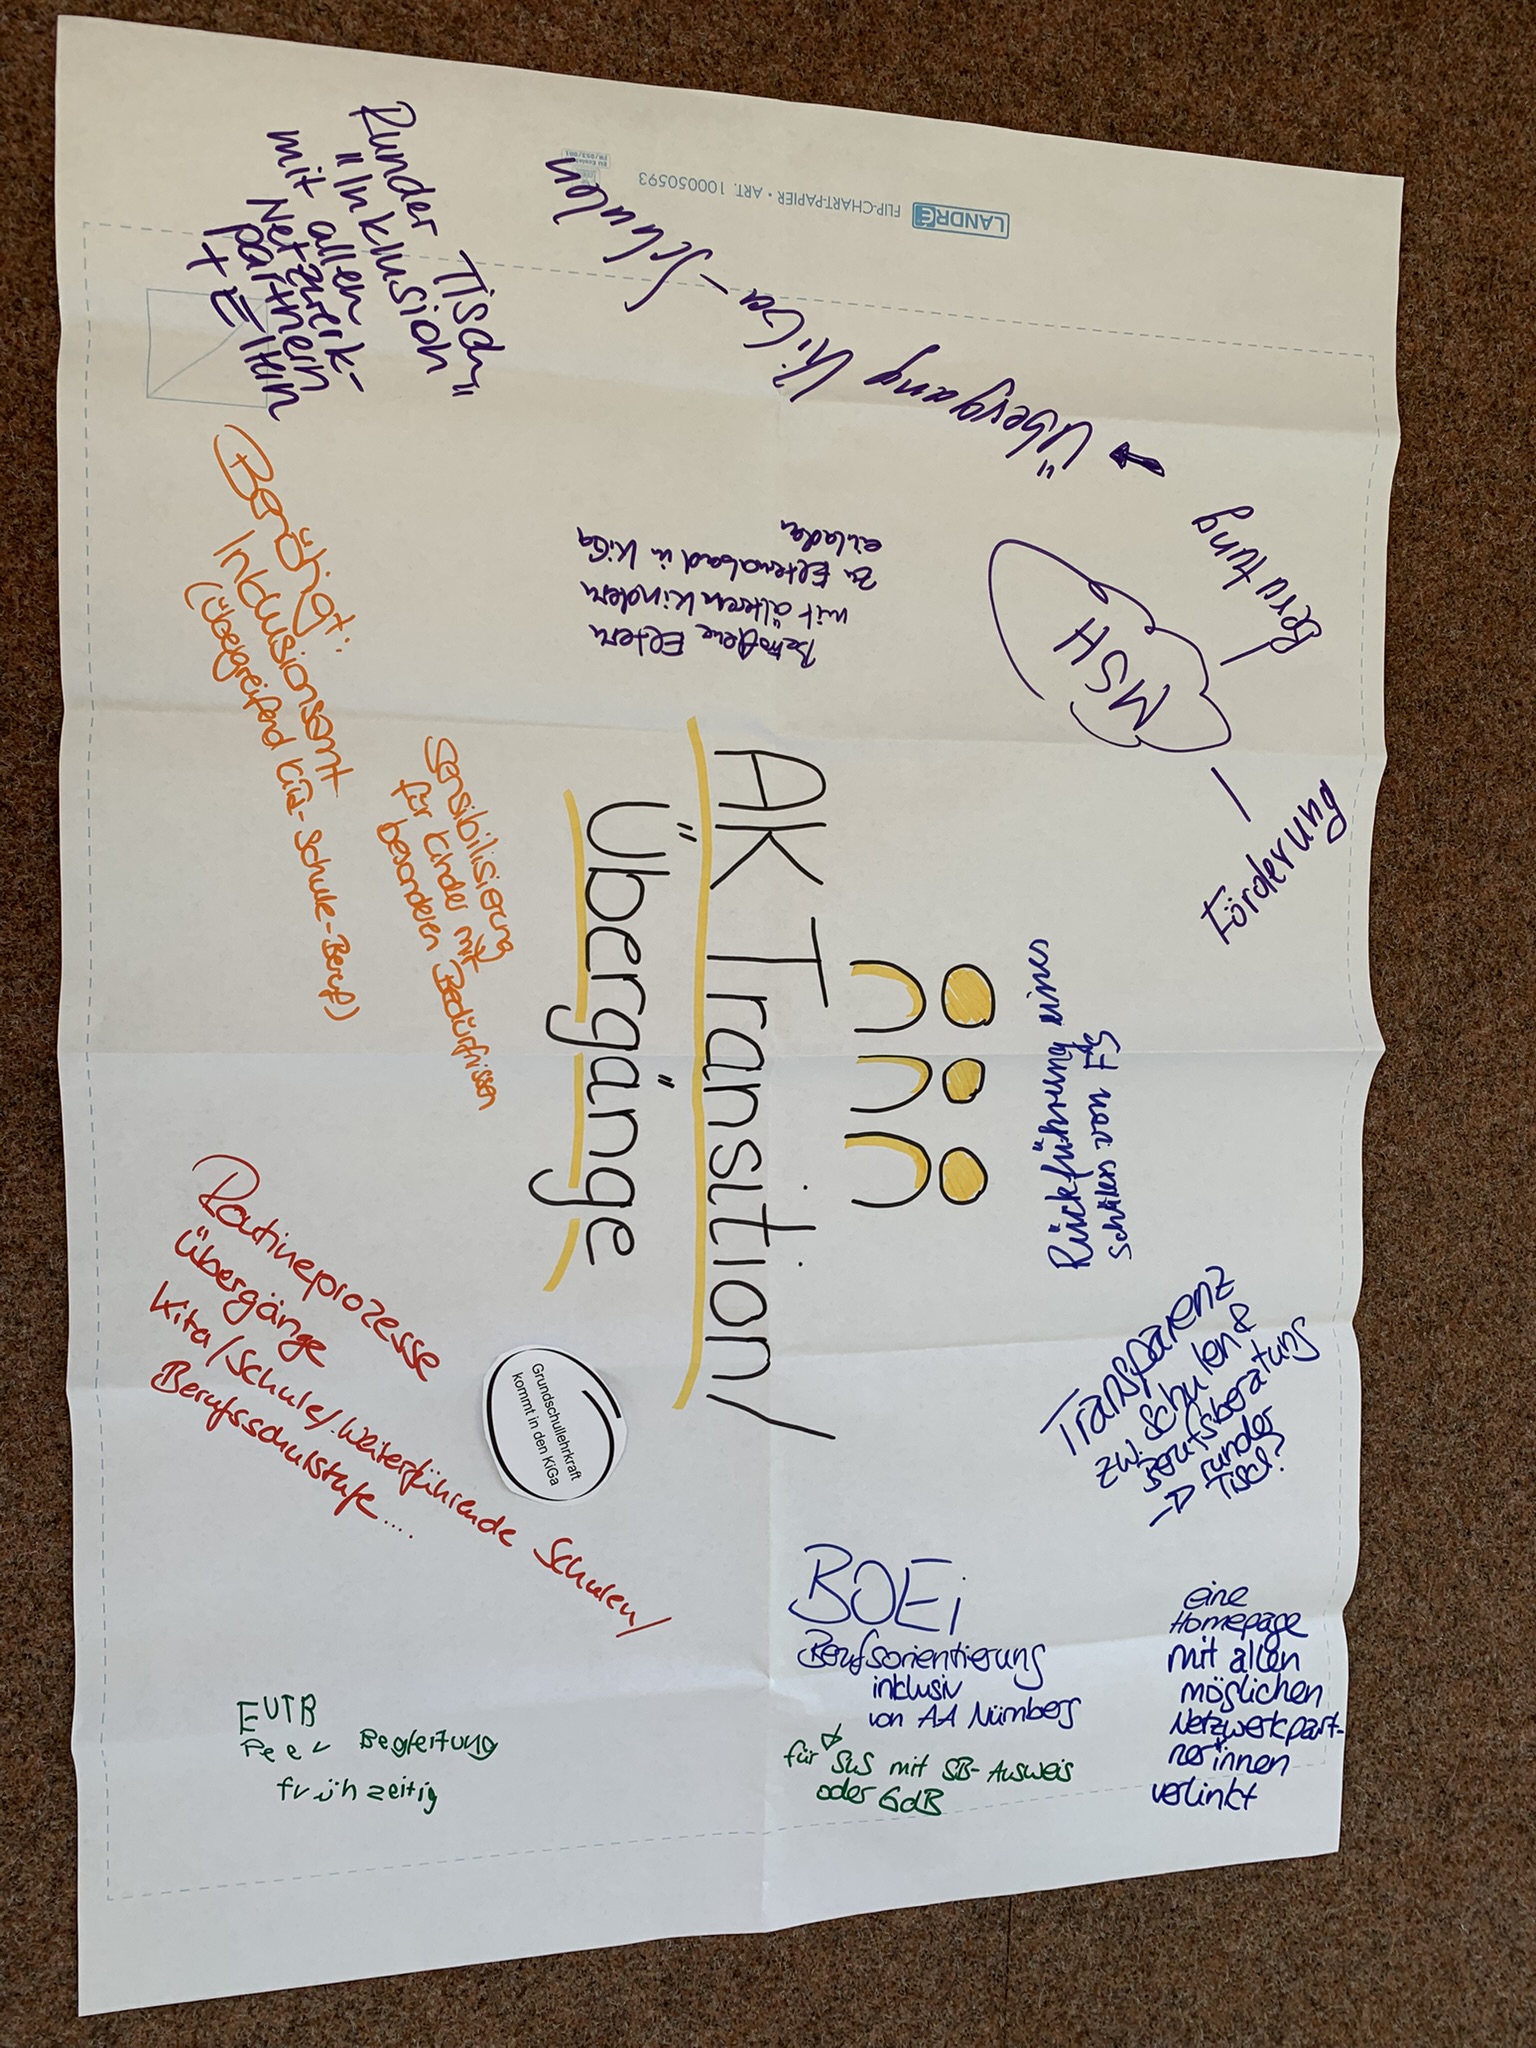 AK Transition/
Übergänge
Runder Tisch
"Inklusion"
mit allen
Netzwerk-
partnern
+ Eltern
Übergang KiGa-Schulen
Betroffene Eltern
mit älteren Kindern
zu Elternabend in KiGa
einladen
MSH
Beratung
Förderung
Benötigt:
Inklusionsamt
(Übergreifend Kita-Schule-Beruf)
Sensibilisierung
für Kinder mit
besonderen Bedürfnissen
Rückführung eines
Schülers von FS
Transparenz
zw. Schulen &
Berufsberatung
→ runder
Tisch?
Routineprozesse
Übergänge
Kita/Schule/weiterführende Schulen/
Berufsschulstufe....
Grundschullehrkraft
kommt in den KiGa
BOEi
Berufsorientierung
inklusiv
von AA Nürnberg
für SuS mit SB-Ausweis
oder GdB
eine
Homepage
mit allen
möglichen
Netzwerkpart-
ner*innen
verlinkt
EUTB
Peer Begleitung
frühzeitig
LANDRÉ FLIP-CHART-PAPIER • ART. 100050593